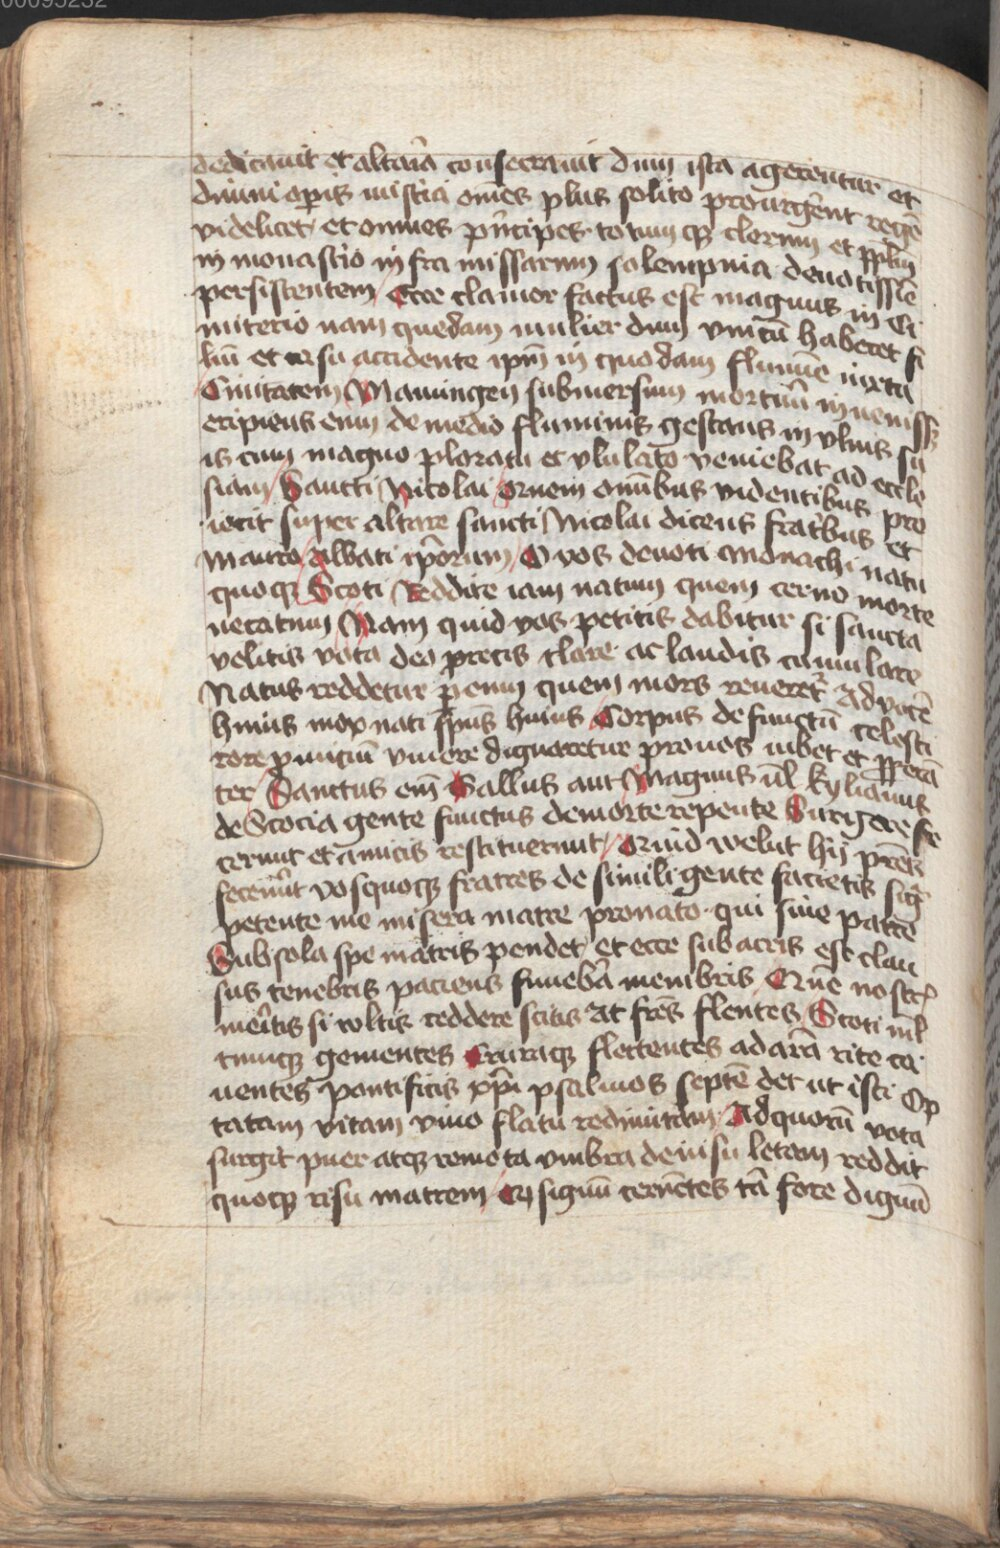 00095232
dedicauit et altaria consecrauit dum ista agerentur et
diuini operis mistica om̄es plus solito pro urgērent regē
videlicet et omnes pͥncipes totumqꝫ clerum et ppl̄m
in monastͥio infra missarum solempnia deuotissīe
persistentem Ecce clamor factus est magnus in Ci
miterio nam quedam mulier dum vnicū haberet fi
liū et casu accidente ipm̄ in quodam flumīe iuxta
Ciuitatem Mamingen submersum mortuū inuenisset
eripiens eum de medio fluminis gestans in vlnis su
is cum magno ploratu et vlulato veniebat ad eccle
siam Sancti Nicolai Quem omībus videntibus pro
iecit super altare sancti Nicolai dicens fratͥbus et
Mauro Abbati ip̄orum O vos deuoti Monachi natu
quoqꝫ Scoti Reddite iam natum quem cerno morte
necatum Nam quid vos petitis dabitur si sancta
velitis vota deo precis clare ac laudis cumulare
Natus reddetur per eum quem mors reueretͬ Ad vocē
huius mox nati sp̄us huius Corpus defunctū celesti
rore punctū viuere dignaretur pro nos iubet et
ter Sanctus em̄ Gallus aut Magnus ul̄ kylianus
de Scocia gente functus de morte repente Surgere fe
cerunt et amicis restituerunt Quid welut hij pr̄es
fecerūt vos quoqꝫ fratres de simili gente facietis sic
petente me misera matre pro nato qui sine patre
Sub sola spe matris pendet et ecce sub acris est clau
sus tenebris paciens funebͣ menibris Quē nostrͥ
meͥitis si voltis reddere scitis At fr̄es flentes Scoti ml̄
tumqꝫ gementes Cruraqꝫ flectentes ad arā rite ca
uentes pontificis xp̄i psalmos septē det ut isti Op
tatam vitam viuo flatu redimitam Ad quorū vota
surgit puer atqꝫ remota vmbra de visu letam reddit
quoqꝫ risu matrem Qͥ signū cernētes tā fore dignū